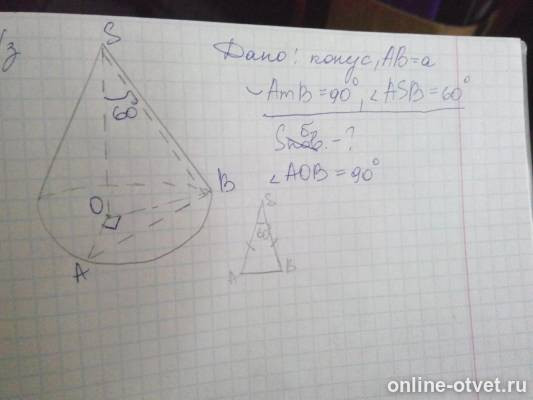 √3
S
60
O
B
A
Дано: конус, AB=a
◡AmB=90°, ∠ASB=60°
Sбп. -?
∠AOB=90°
S
60°
A B
online-otvet.ru